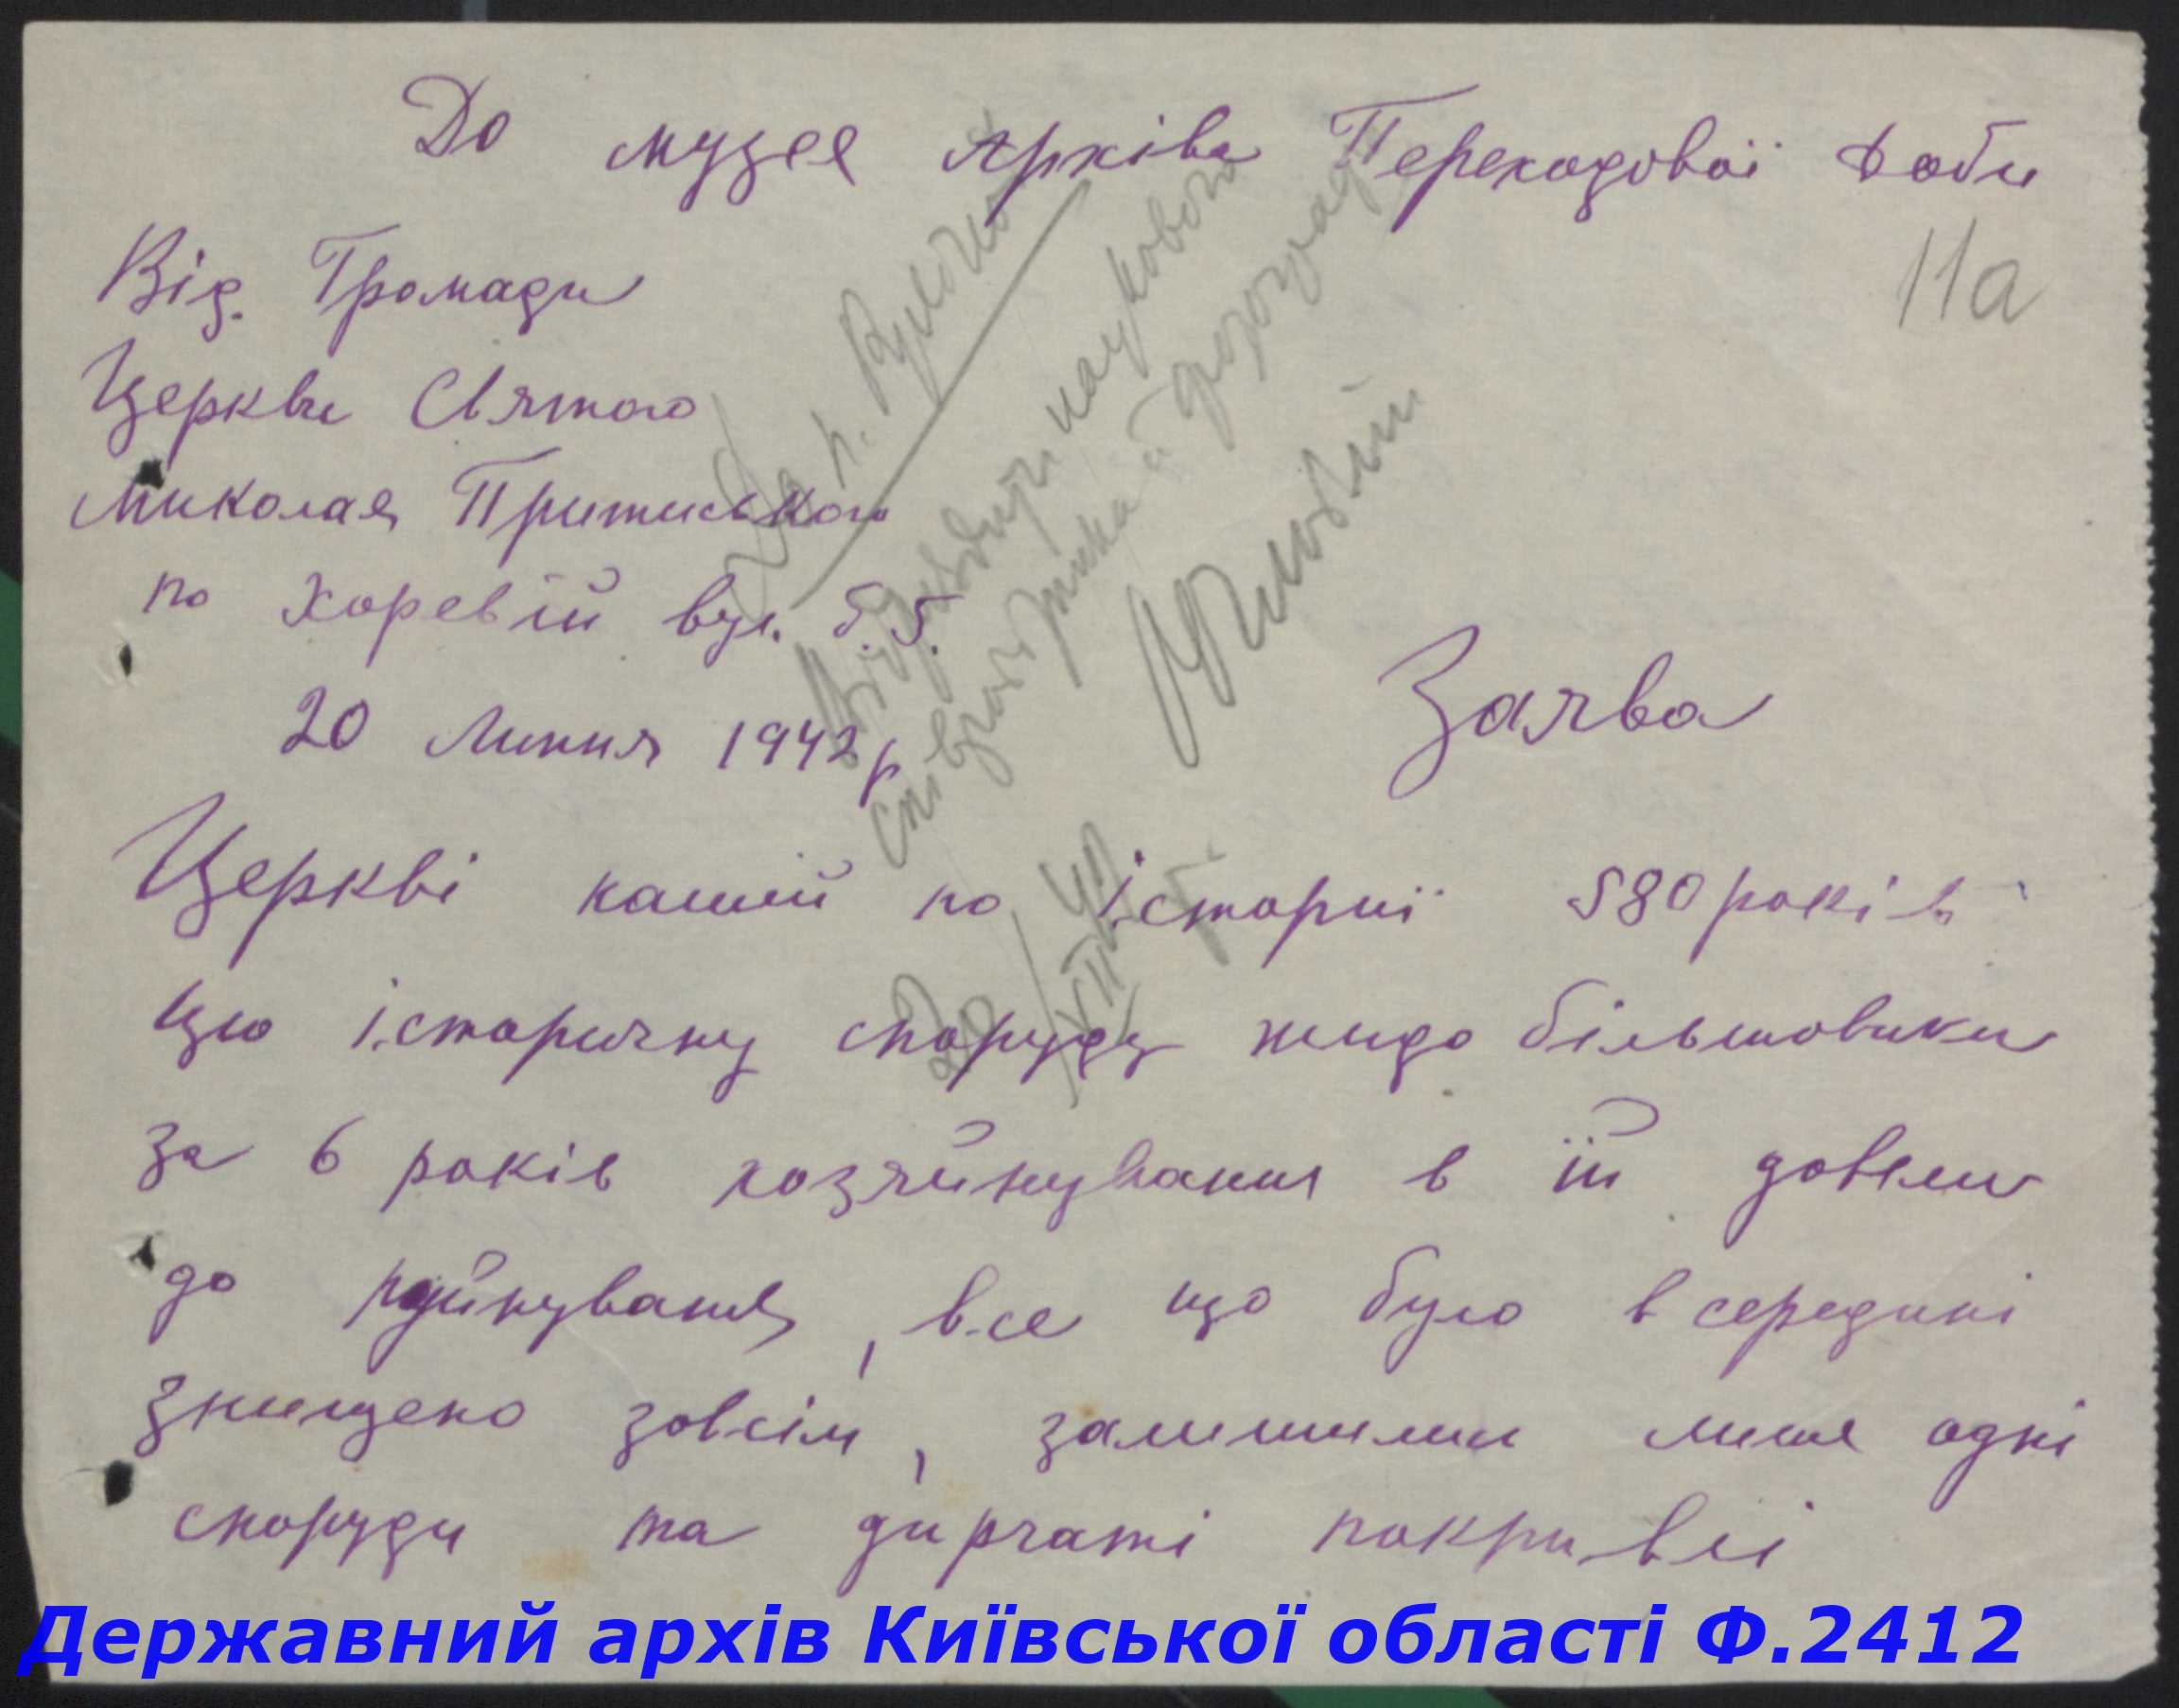 До музея Архіва Переходової Доби
11а
Від. Громади
Церкви Святого
Миколая Притиського
по Хоревій вул. Б. 5.
20 Липня 1942 р
Заява
До п.
науковою
Церкві нашій по історії 580 років
цю історичну споруду жидо більшовики
за 6 років хозяйнування в їй довели
до руйнування, все що було в середині
знищено зовсім, залишили лише одні
споруди та дирчаті покривлі
Державний архів Київської області Ф.2412